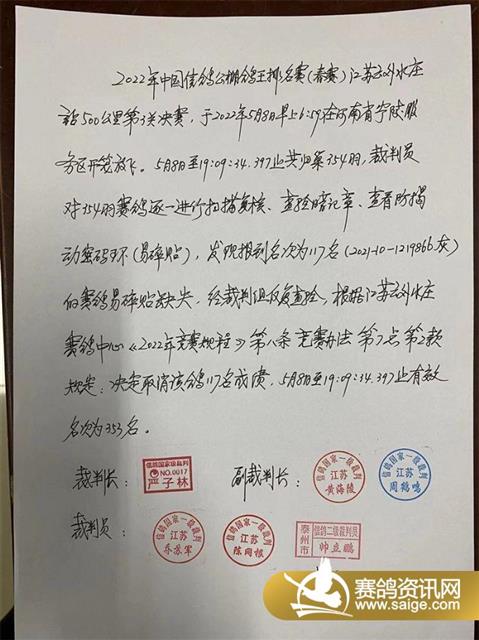 2022年中国信鸽公棚鸽王排名赛(春赛)江苏云外水庄
站500公里第3关决赛，于2022年5月8日早上6:59在河南省宁陵服
务区开笼放飞。5月8日至19:09:34.397止共归巢354羽，裁判员
对354羽赛鸽逐一进行扫描复核、查验暗记章、查看防揭
动密码环(易碎贴)，发现报到名次为117名(2021-10-1219866灰)
的赛鸽易碎贴缺失，经裁判组反复查验，根据江苏云外水庄
赛鸽中心《2022年竞赛规程》第八条竞赛办法第7点第2款
规定：决定取消该鸽117名成绩，5月8日至19:09:34.397止有效
名次为353名。
裁判长： 信鸽国家级裁判 NO.0017 严子林 副裁判长： 信鸽国家一级裁判 江苏 黄海陵 信鸽国家一级裁判 江苏 周鹤鸣
裁判员： 信鸽国家一级裁判 江苏 乔苏军 信鸽国家一级裁判 江苏 陈同根 泰州市 信鸽二级裁判员 帅立鹏
赛鸽资讯网
www.saige.com